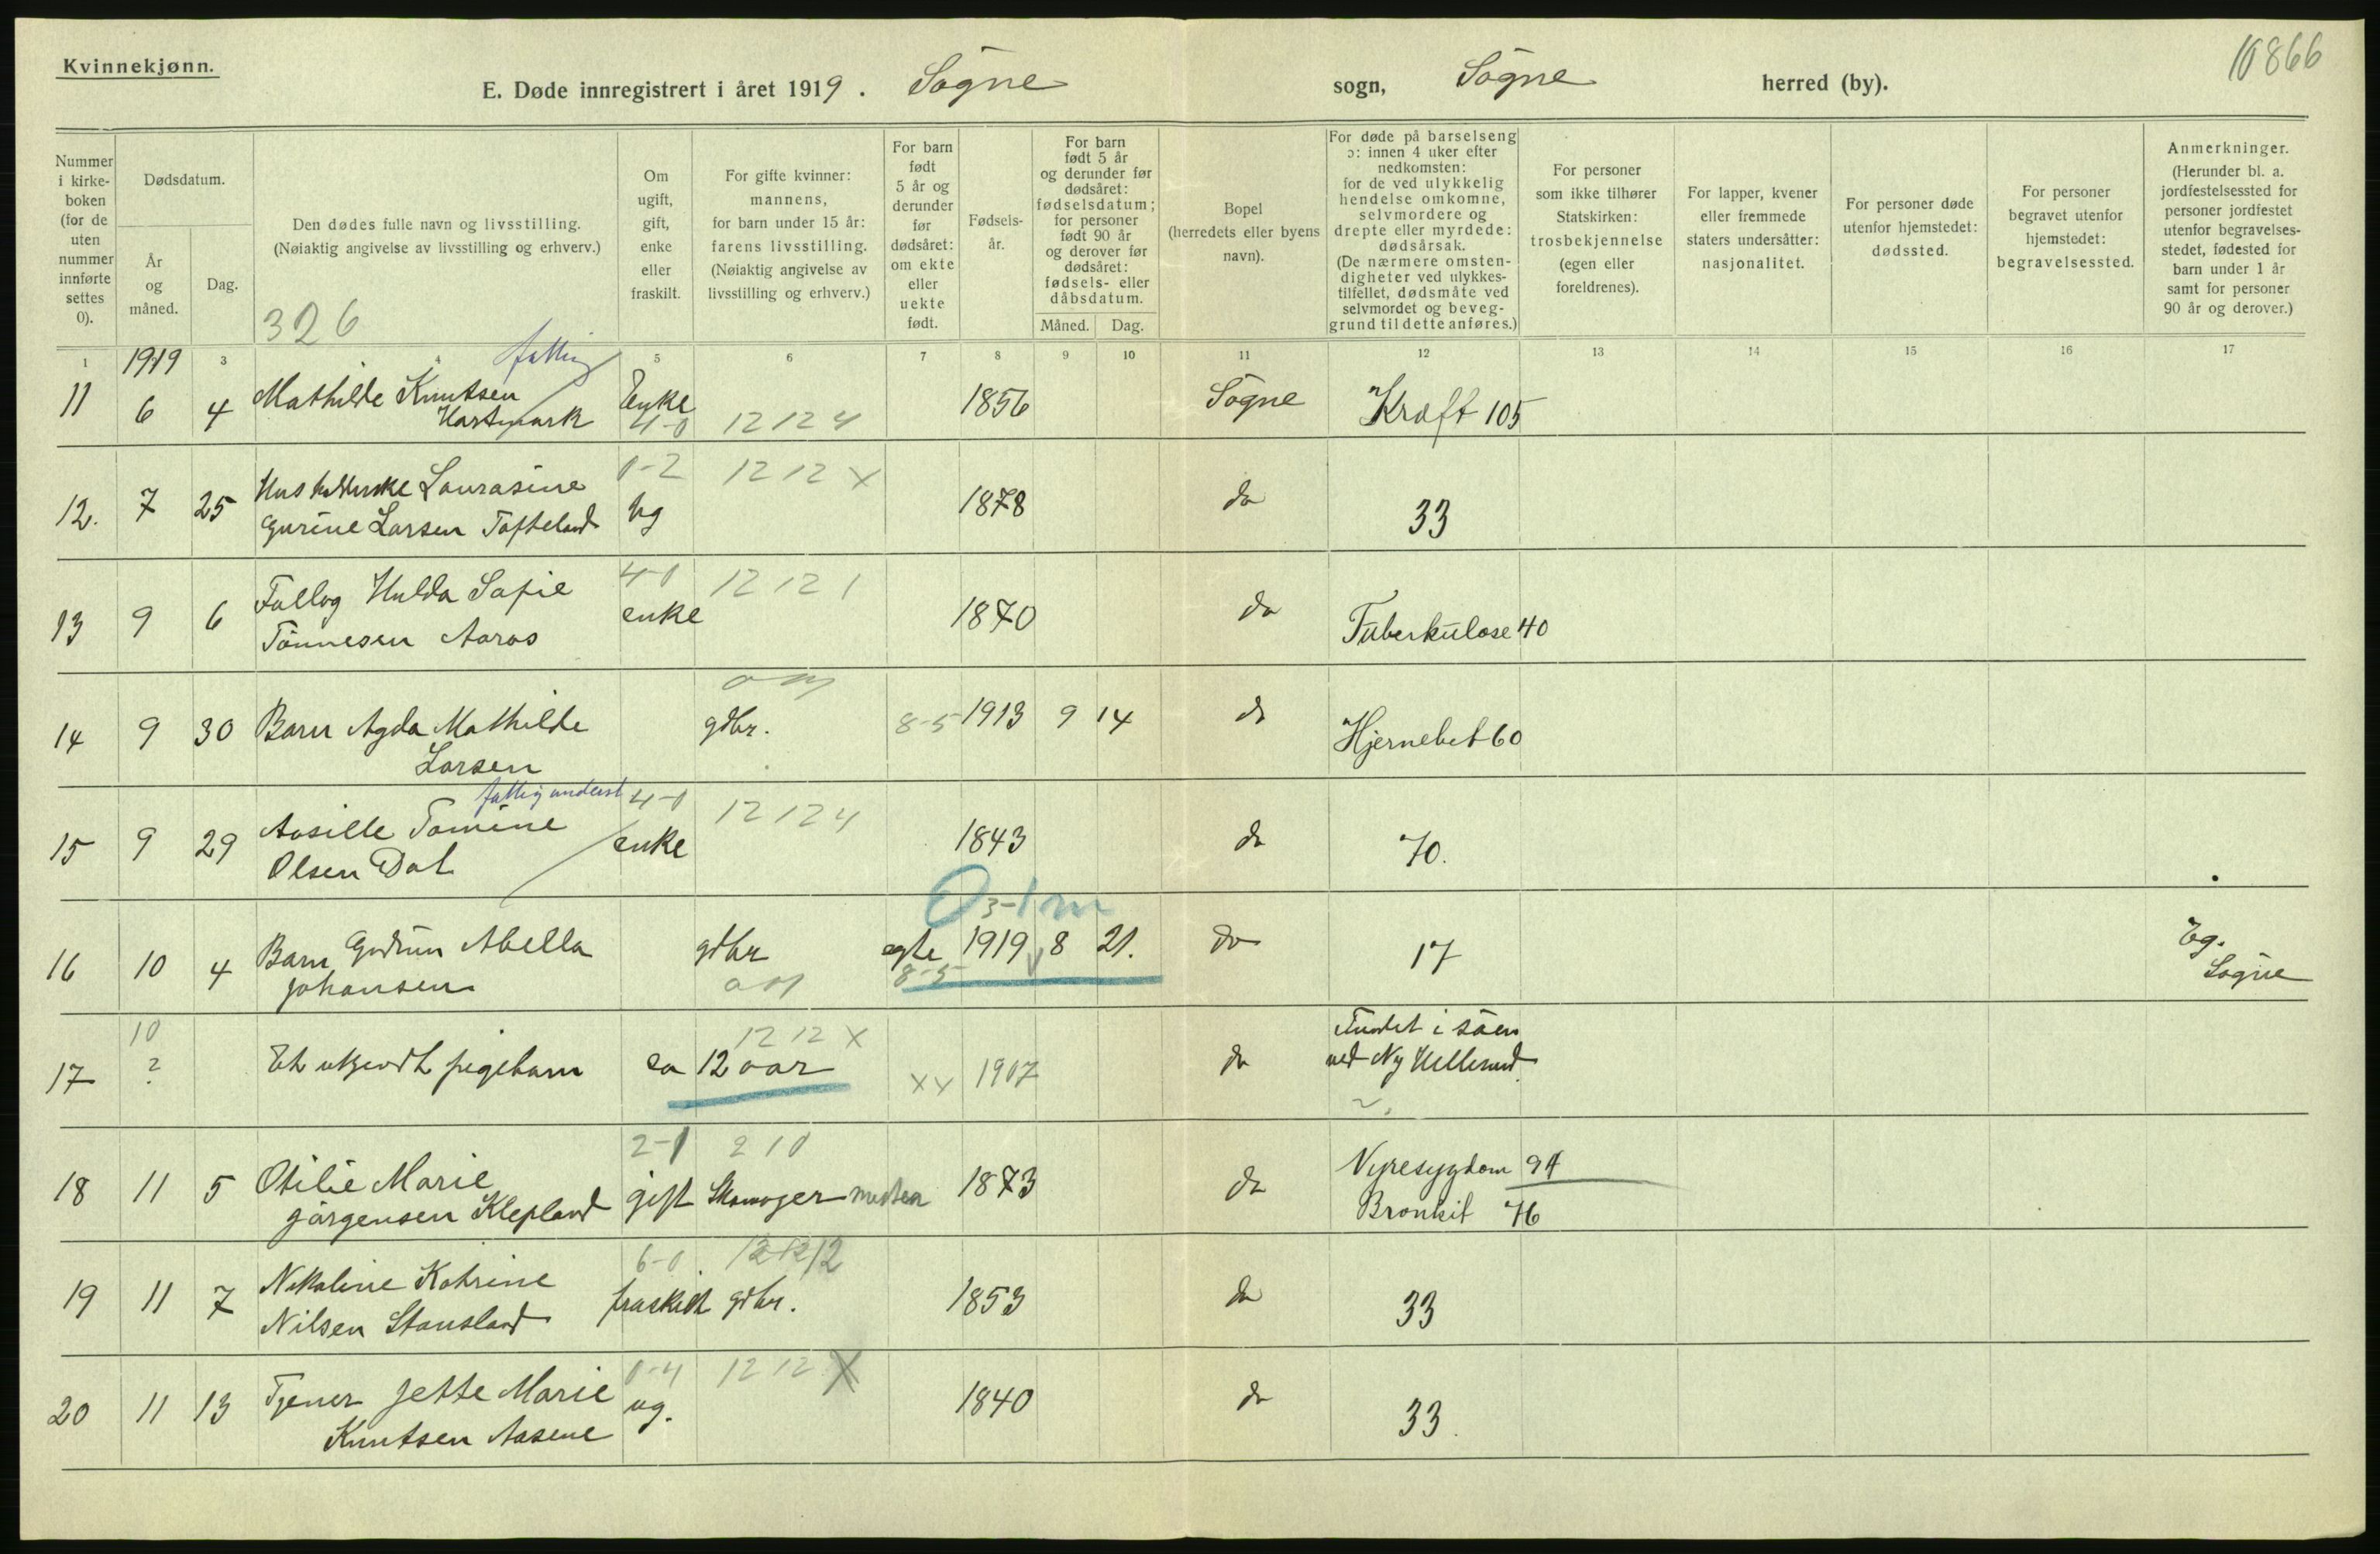 Kvinnekjønn.
E. Døde innregistrert i året 1919. Søgne sogn, Søgne herred (by).
10866
Nummer i kirke-boken (for de uten nummer innførte settes 0).
Dødsdatum.
År og måned.
Dag.
Den dødes fulle navn og livsstilling.
(Nøiaktig angivelse av livsstilling og erhverv.)
326
Om ugift, gift, enke eller fraskilt.
For gifte kvinner: mannens, for barn under 15 år: farens livsstilling.
(Nøiaktig angivelse av livsstilling og erhverv.)
For barn født 5 år og derunder før dødsåret: om ekte eller uekte født.
Fødsels-år.
For barn født 5 år og derunder før dødsåret: fødselsdatum; for personer født 90 år og derover før dødsåret: fødsels- eller dåbsdatum.
Måned.
Dag.
Bopel (herredets eller byens navn).
For døde på barselseng ɔ: innen 4 uker efter nedkomsten: for de ved ulykkelig hendelse omkomne, selvmordere og drepte eller myrdede: dødsårsak.
(De nærmere omsten-digheter ved ulykkes-tilfellet, dødsmåte ved selvmordet og beveg-grund til dette anføres.)
For personer som ikke tilhører Statskirken: trosbekjennelse (egen eller foreldrenes).
For lapper, kvener eller fremmede staters undersåtter: nasjonalitet.
For personer døde utenfor hjemstedet: dødssted.
For personer begravet utenfor hjemstedet: begravelsessted.
Anmerkninger.
(Herunder bl. a. jordfestelsessted for personer jordfestet utenfor begravelses-stedet, fødested for barn under 1 år samt for personer 90 år og derover.)
1 3 4 5 6 7 8 9 10 11 12 13 14 15 16 17
1919
fattig
11 6 4 Mathilde Knutsen Hartmark Enke 4-0 12 12 4 1856 Søgne Kræft 105
0-2 12 12 X
12. 7 25 Husholderske Laurasine Gurine Larsen Tofteland ug 1878 do 33
4-0 12 12 1
13 9 6 Hulda Sofie Tønnesen Aaros enke 1870 do Tuberkulose 40
14 9 30 Barn Agda Mathilde Larsen gdbr. 8-5 1913 9 14 do Hjernebet 60
fattigunderst 4-0 12 12 4
15 9 29 Aasille Tomine Olsen Dal enke 1843 do 70.
0 3-1 m
16 10 4 Barn Gudrun Abella Johansen gdbr egte 8-5 1919 8 21. do 17 Eg. Søgne
10 12 12 X
17 ? Et ukjendt pigebarn ca 12 aar xx 1907 do Fundet i søen ved Ny Hellesund.
2-0 2 10
18 11 5 Otilie Marie Jørgensen Klepland gift Skomagermester 1873 do Nyresygdom 94
Bronkit 76
6-0 12 12 12
19 11 7 Nikoline Katrine Nilsen Stausland fraskilt gdbr. 1853 do 33
0-4 12 12 X
20 11 13 Tjener Jette Marie Knutsen Aasene ug. 1840 do 33.